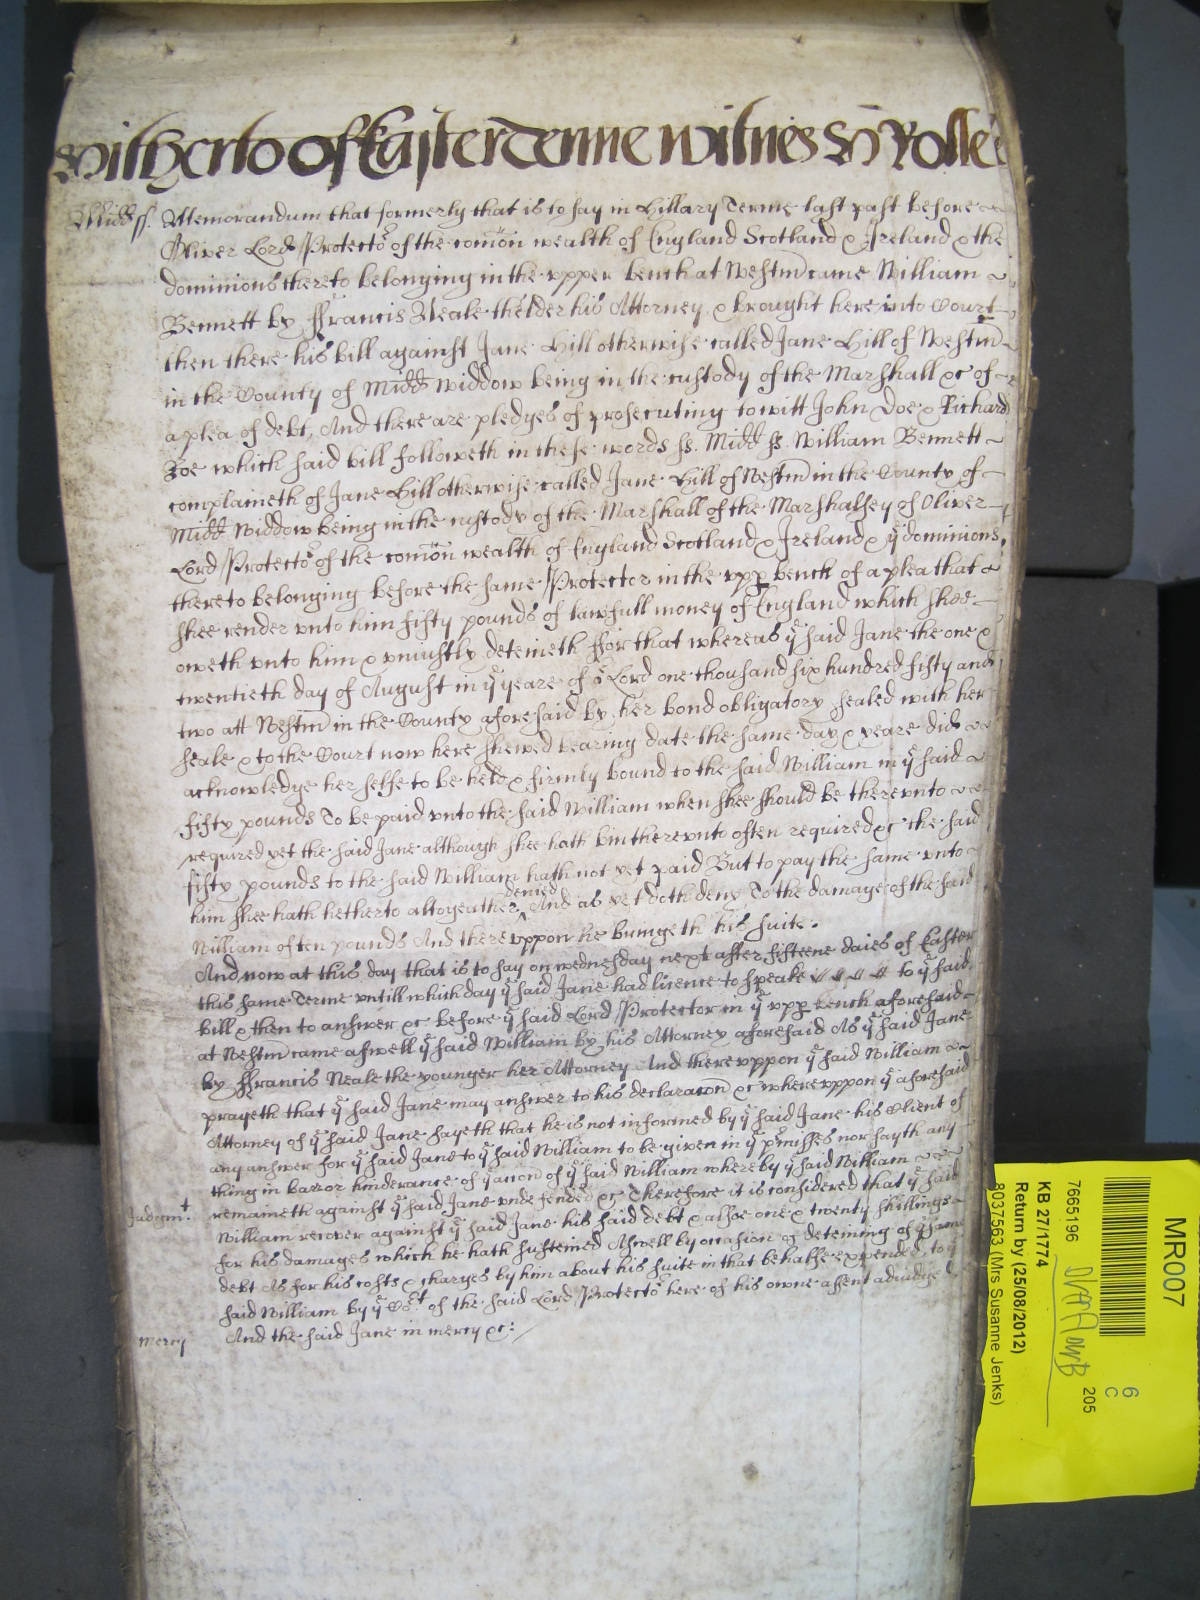 Witherto of Easter Terme Witnes H Rolle
Midd ss. Memorandum that formerly that is to say in Hillary Terme last past before
Oliver Lord Protectoʳ of the com̄on wealth of England Scotland & Ireland & the
dominions thereto belonging in the vpper bench at Westm̄ came William
Bennett by ffrancis Neale thelder his Attorney & brought here into Court
then there his bill against Jane Hill otherwise called Jane Hill of Westm̄
in the County of Midd Widdow being in the custody of the Marshall &c of
a plea of debt, And there are pledges of prosecuting to witt John Doe & Richard
Roe which said bill followeth in these words ss. Midd ss. William Bennett
complaineth of Jane Hill otherwise called Jane Hill of Westm̄ in the County of
Midd Widdow being in the custody of the Marshall of the Marshalsey of Oliver
Lord Protectoʳ of the com̄on wealth of England Scotland & Ireland & yᵉ dominions
thereto belonging before the same Protector in the vpp bench of a plea that
shee render vnto him fifty pounds of lawfull money of England which shee
oweth vnto him & vniustly deteineth ffor that whereas yᵉ said Jane the one &
twentieth day of August in yᵉ yeare of oʳ Lord one thousand six hundred fifty and
two att Westm̄ in the County aforesaid by her bond obligatory sealed with her
seale & to the Court now here shewed bearing date the same day & yeare did
acknowledge her selfe to be held & firmly bound to the said William in yᵉ said
fifty pounds To be paid vnto the said William when shee should be there vnto
required yet the said Jane although shee hath bin there vnto often required &c the said
fifty pounds to the said William hath not yet paid But to pay the same vnto
him shee hath hetherto altogeather denied And as yet doth deny To the damage of the said
William of ten pounds And there vppon he bringeth his suite.
And now at this day that is to say on wednesday next after fifteene daies of Easter
this same Terme vntill which day yᵉ said Jane had licence to speake to yᵉ said
bill & then to answer &c before yᵉ said Lord Protector in yᵉ vpp bench aforesaid
at Westm̄ came aswell yᵉ said William by his Attorney aforesaid As yᵉ said Jane
by ffrancis Neale the younger her Attorney And there vppon yᵉ said William
prayeth that yᵉ said Jane may answer to his declaracōn &c where vppon yᵉ aforesaid
Attorney of yᵉ said Jane sayeth that he is not informed by yᵉ said Jane his Client of
any answer for yᵉ said Jane to yᵉ said William to be given in yᵉ pʳmisses nor sayth any
thing in barr or hinderance of yᵉ accōn of yᵉ said William whereby yᵉ said William
remaineth against yᵉ said Jane vndefended &c Therefore it is considered that yᵉ said
Judgmᵗ. William recover against yᵉ said Jane his said debt & alsoe one & twenty shillings
for his damages which he hath susteined Aswell by occasion of deteining of yᵉ same
debt As for his costs & charges by him about his suite in that behalfe expended, to yᵉ
said William by yᵉ Coʳᵗ of the said Lord Protectoʳ here of his owne assent adiudged
mercy And the said Jane in mercy &c:
MR007
7665196
205
6
C
KB 27/1774
Return by (25/08/2012)
8037563 (Mrs Susanne Jenks)